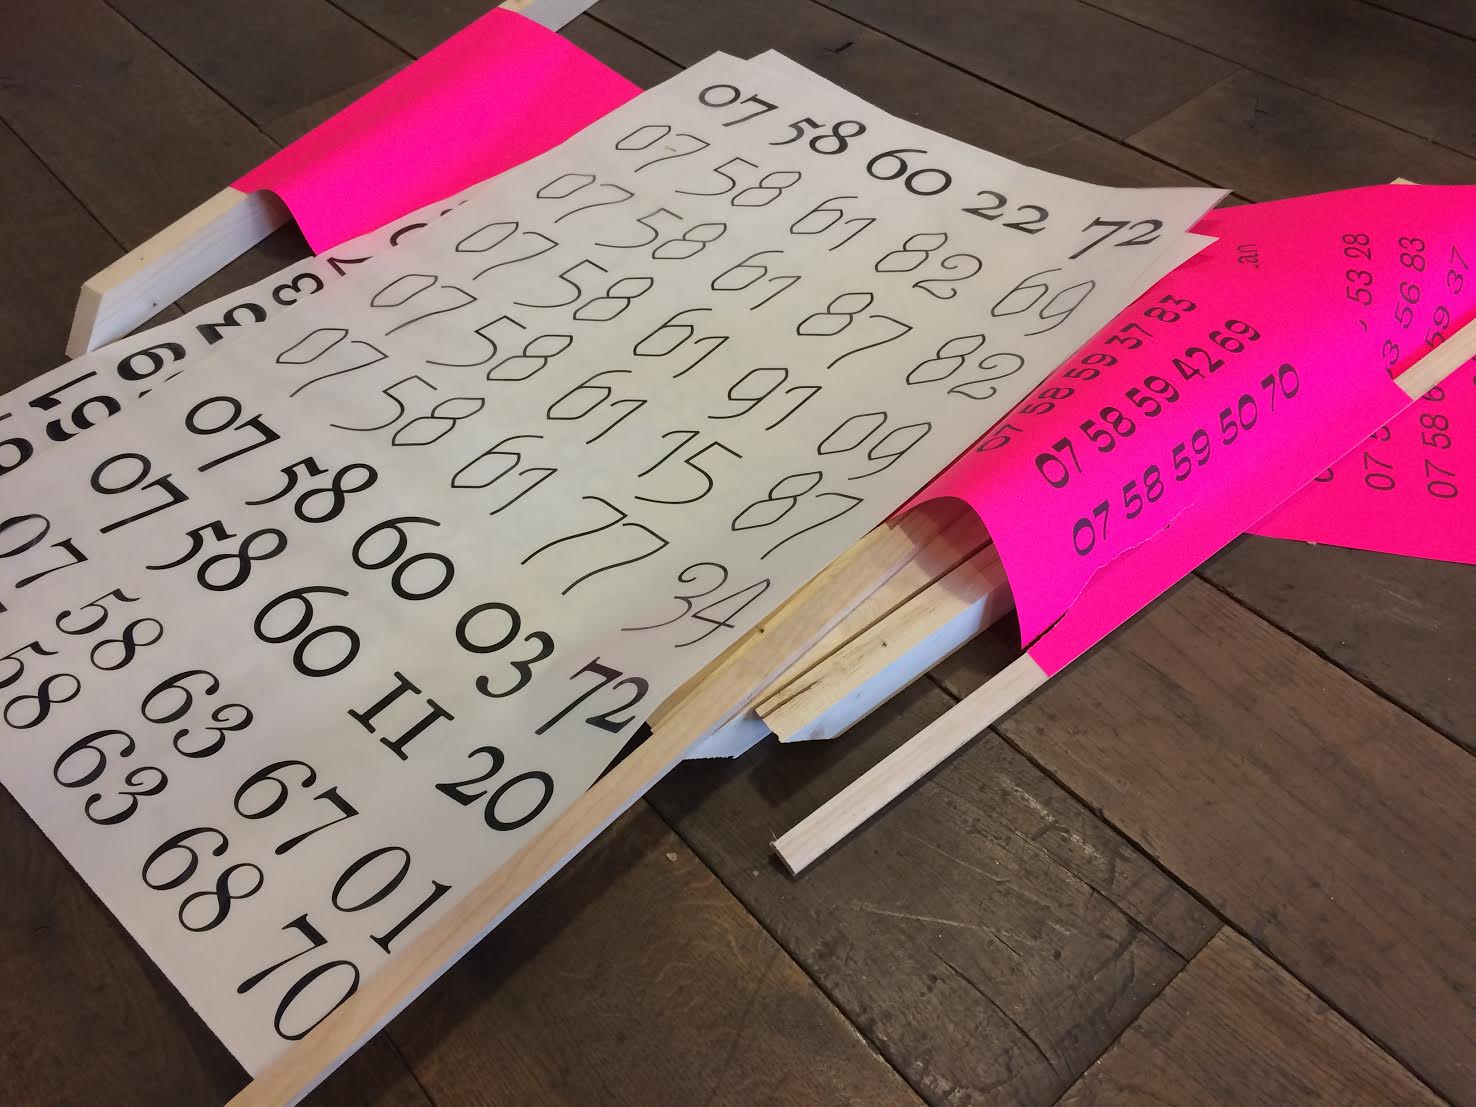 07 58 60 22 72
07 58 61 82 69
07 58 61 87 82
07 58 61 91 09
07 58 61 15 87
07 58 61 77 34
07 58 60 03 72
07 58 60 11 20
07 58 63 67 01
58 63 68 70
.an
07 58 59 37 83
07 58 59 42 69
07 58 59 50 70
53 28
56 83
59 37
07
07 58